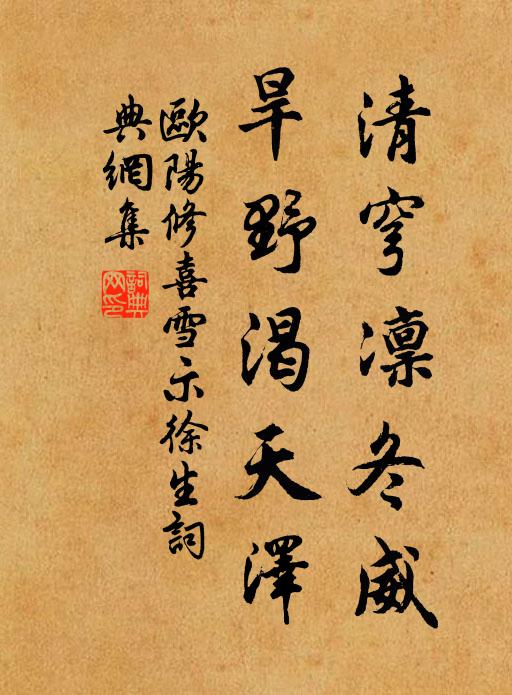 清穹凜冬威
旱野渴天澤
歐陽修喜雪示徐生詞
典網集
詞典
网印